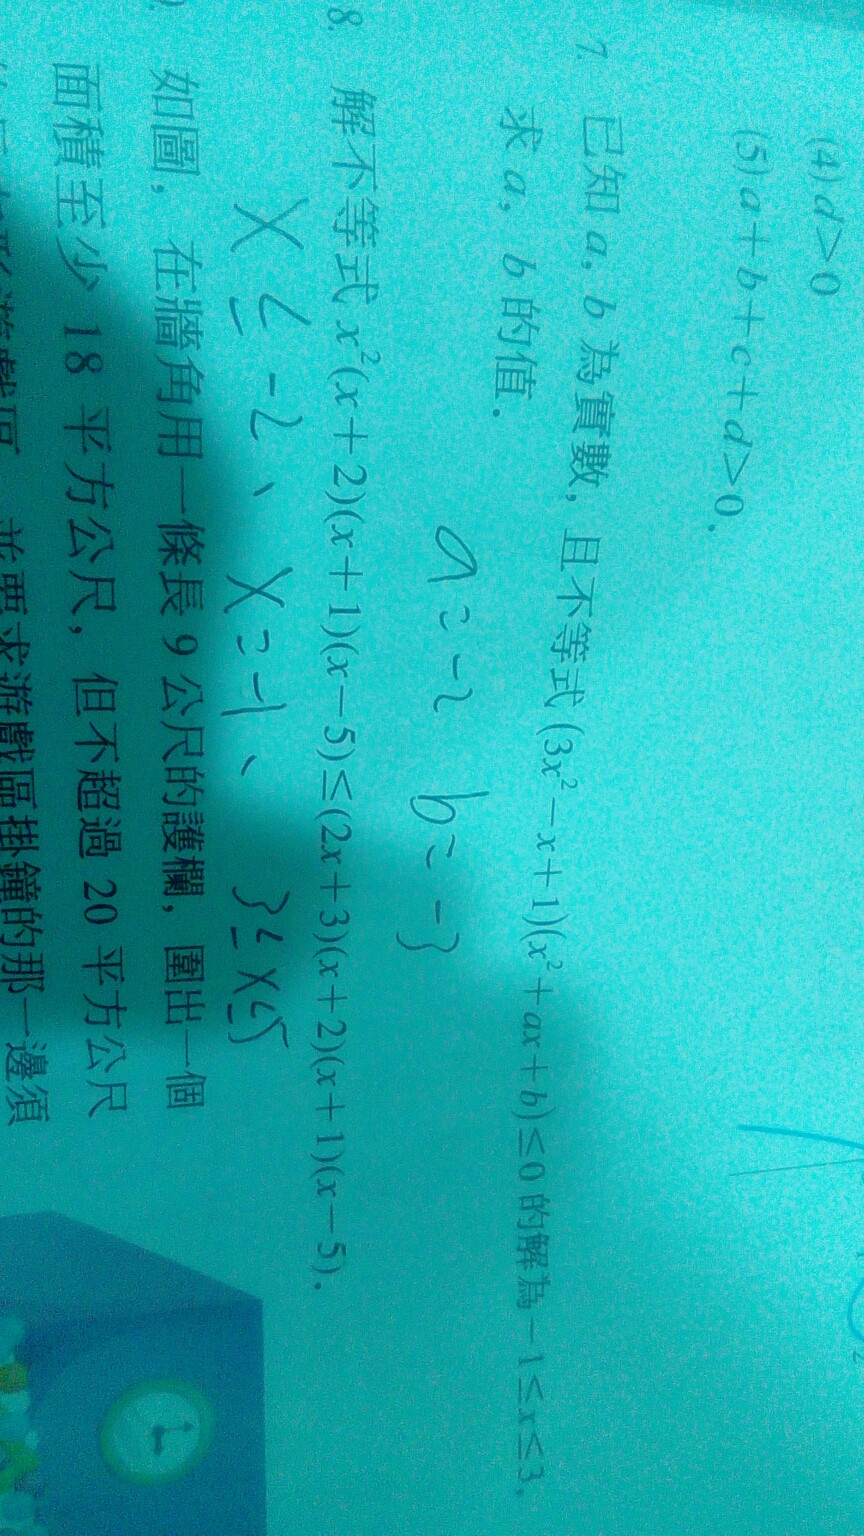 (4) d>0
(5) a+b+c+d>0.
7. 已知 a, b 為實數, 且不等式 (3x²-x+1)(x²+ax+b)≤0 的解為 -1≤x≤3.
求 a, b 的值.
a=-2 b=-3
8. 解不等式 x²(x+2)(x+1)(x-5)≤(2x+3)(x+2)(x+1)(x-5).
x≤-2、x=-1、3≤x≤5
如圖, 在牆角用一條長 9 公尺的護欄, 圍出一個
面積至少 18 平方公尺, 但不超過 20 平方公尺
並要求遊戲區掛鐘的那一邊須